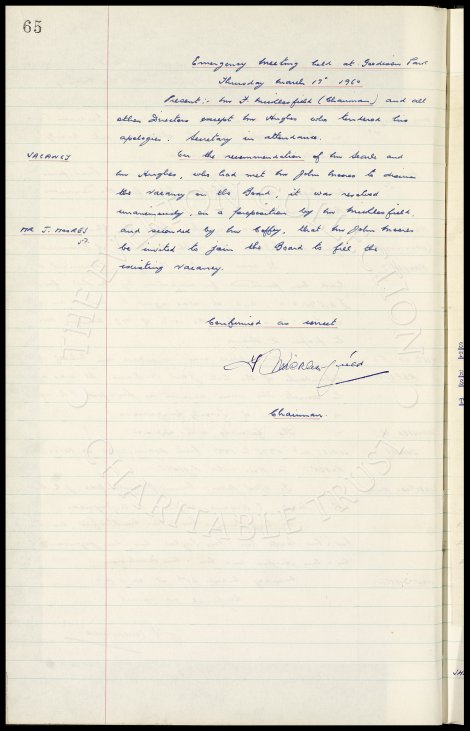 65
Emergency Meeting held at Goodison Park
Thursday March 17th 1960
Present:- Mr F. Micklesfield (Chairman) and all
other Directors except Mr Hughes who tendered his
apologies. Secretary in attendance.
VACANCY
On the recommendation of Mr Searle and
Mr Hughes, who had met Mr John Moores to discuss
the vacancy on the Board, it was resolved
unanimously, on a proposition by Mr Micklesfield
MR J. MOORES
and seconded by Mr Coffey, that Mr John Moores
be invited to join the Board to fill the
existing vacancy.
Confirmed as correct
Chairman.
THE EVERTON COLLECTION
CHARITABLE TRUST